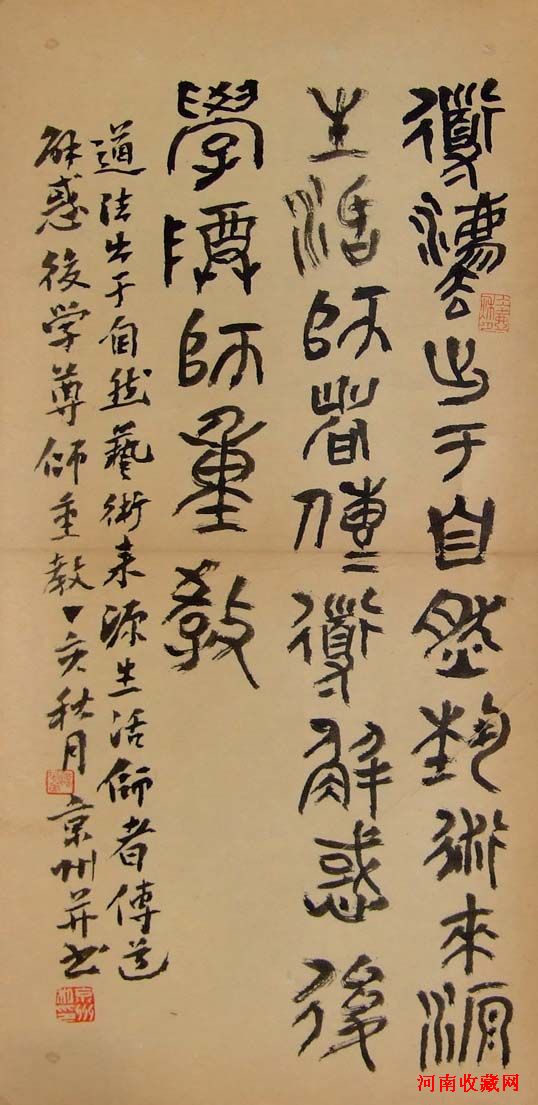 道灋出于自然埶術来源
生活師者傳道解惑後
學尊師重教
道法出于自然藝術来源生活師者傳道
解惑後学尊師重教亥秋月京州并书
河南收藏网